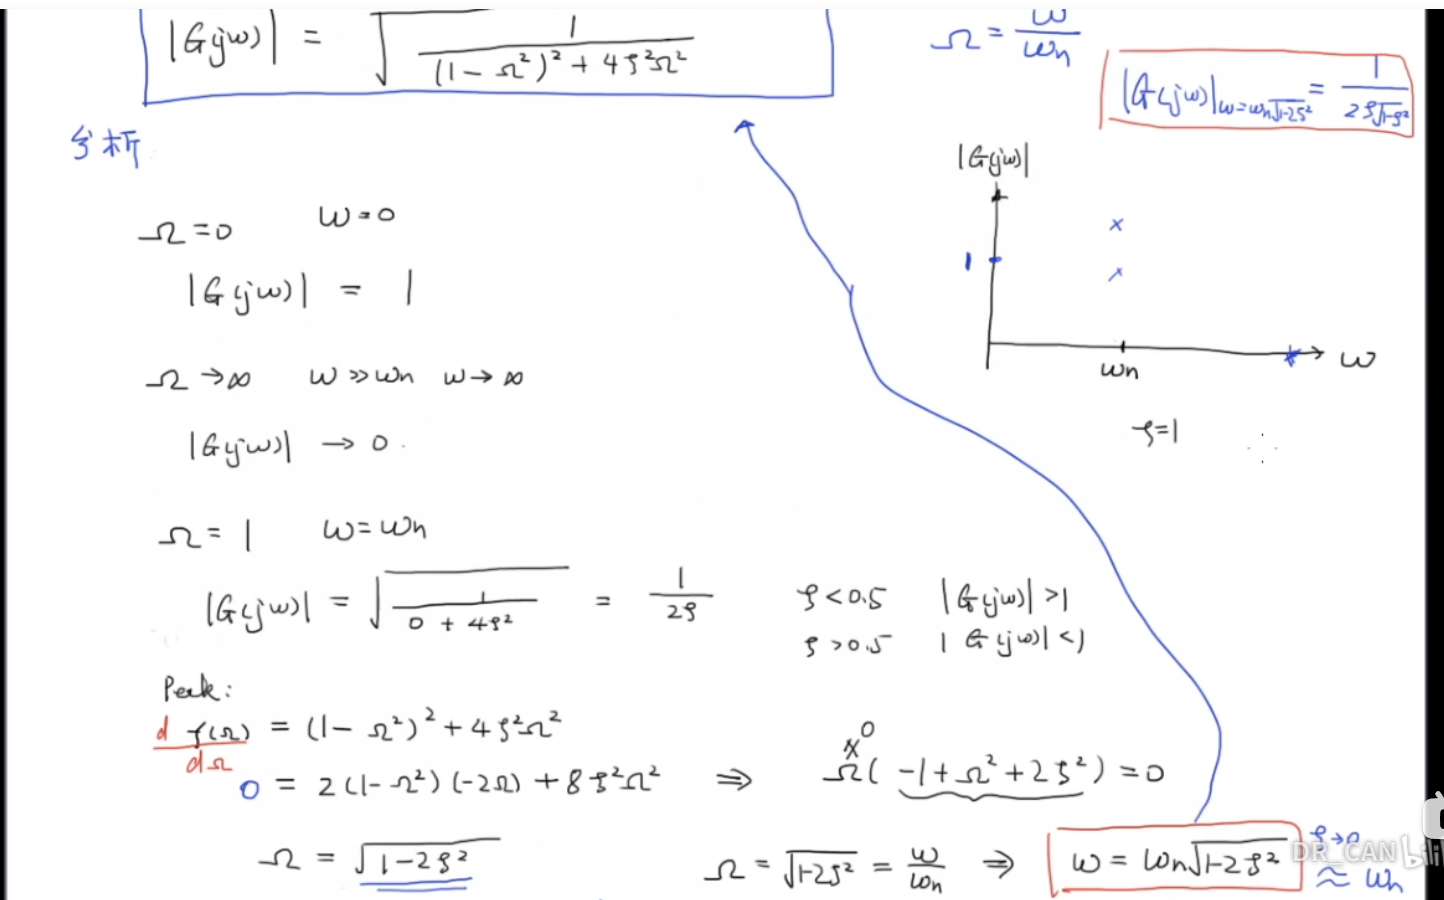 |G(jω)| = √(1/((1-Ω²)²+4ζ²Ω²))
Ω = ω/ωn
|G(jω)|ω=ωn√(1-2ζ²) = 1/(2ζ√(1-ζ²))
分析
|G(jω)|
Ω=0 ω=0
1
|G(jω)| = 1
ωn
ω
Ω→∞ ω≫ωn ω→∞
ζ=1
|G(jω)| → 0
Ω=1 ω=ωn
|G(jω)| = √(1/(0+4ζ²)) = 1/(2ζ)
ζ<0.5 |G(jω)|>1
ζ>0.5 |G(jω)|<1
Peak:
d/dΩ f(Ω) = (1-Ω²)²+4ζ²Ω²
0 = 2(1-Ω²)(-2Ω)+8ζ²Ω² ⇒ Ω(-1+Ω²+2ζ²)=0
Ω = √(1-2ζ²)
Ω = √(1-2ζ²) = ω/ωn ⇒ ω = ωn√(1-2ζ²)
ζ→0
≈ ωn
DR_CAN